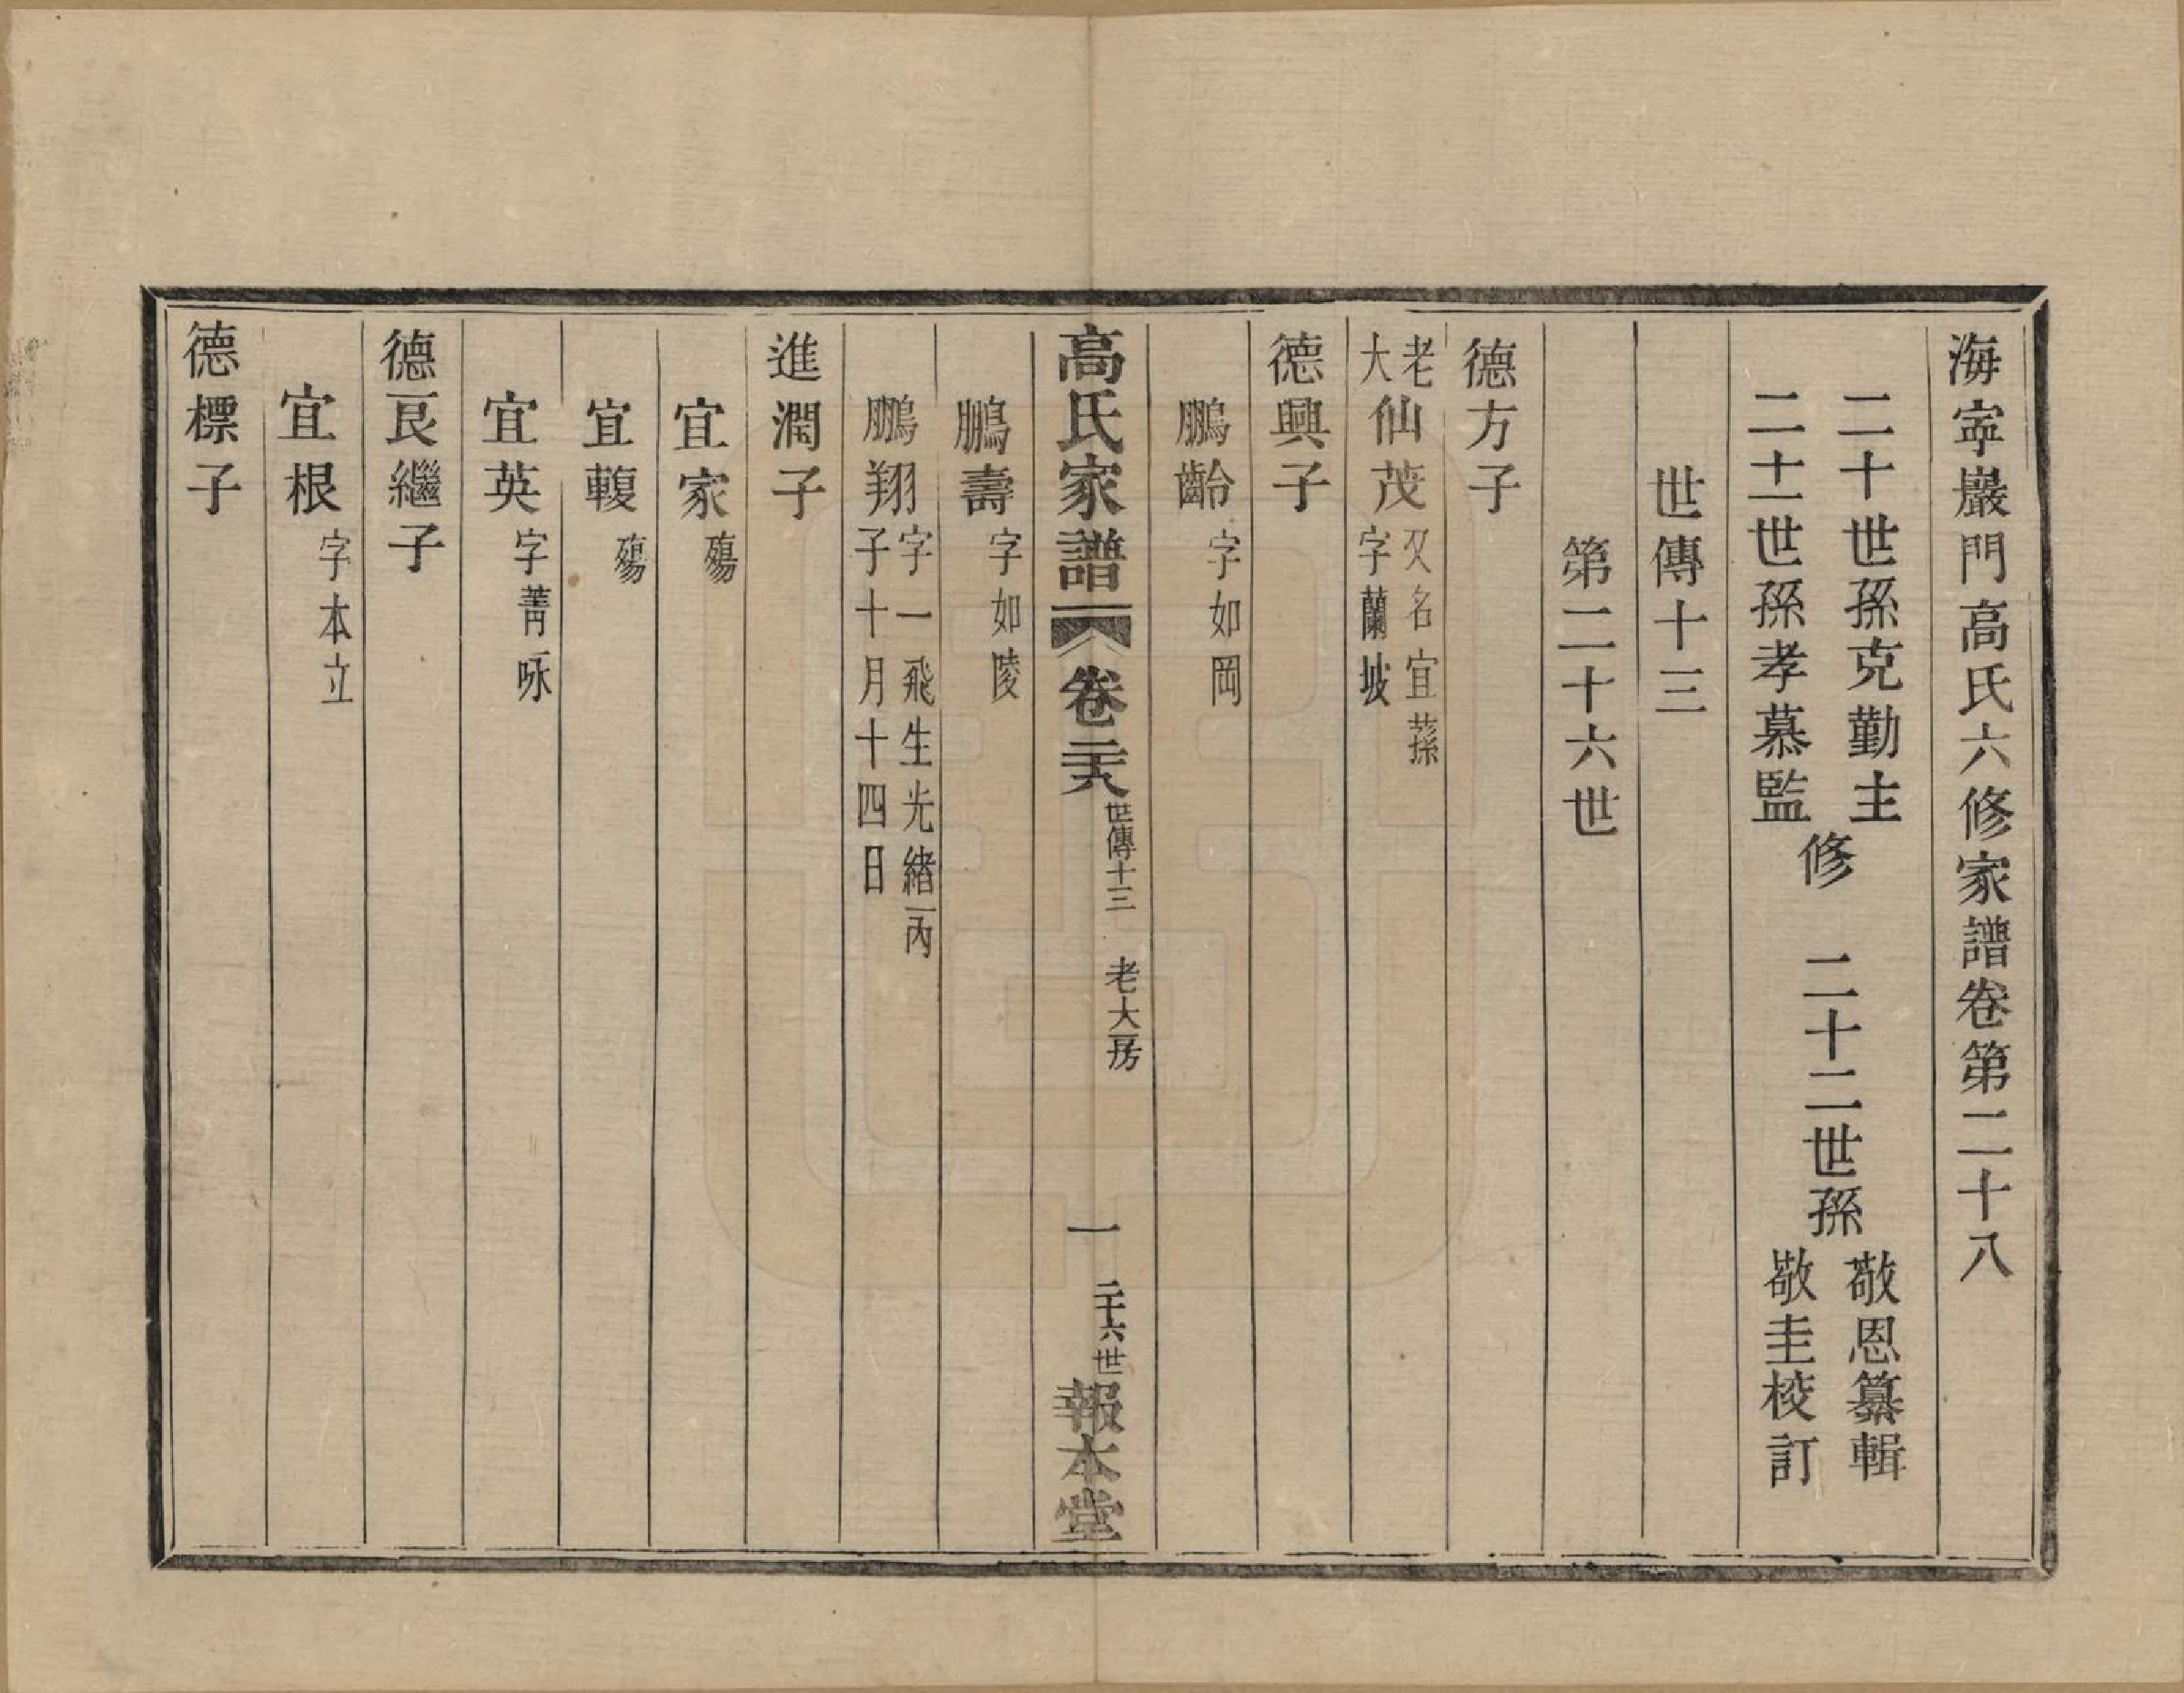 海寧巖門高氏六修家譜卷第二十八
二十世孫克勤主
二十一世孫孝慕監
修
二十二世孫
敬恩纂輯
敬圭校訂
世傳十三
第二十六世
德方子
老大
仙茂
又名宜蓀
字蘭坡
德興子
鵬齡 字如岡
高氏家譜 卷二十八 世傳十三 老大房 一 二十六世 報本堂
鵬壽 字如陵
鵬翔
字一飛生光緒丙
子十月十四日
進潤子
宜家 殤
宜輹 殤
宜英 字菁咏
德艮繼子
宜根 字本立
德標子